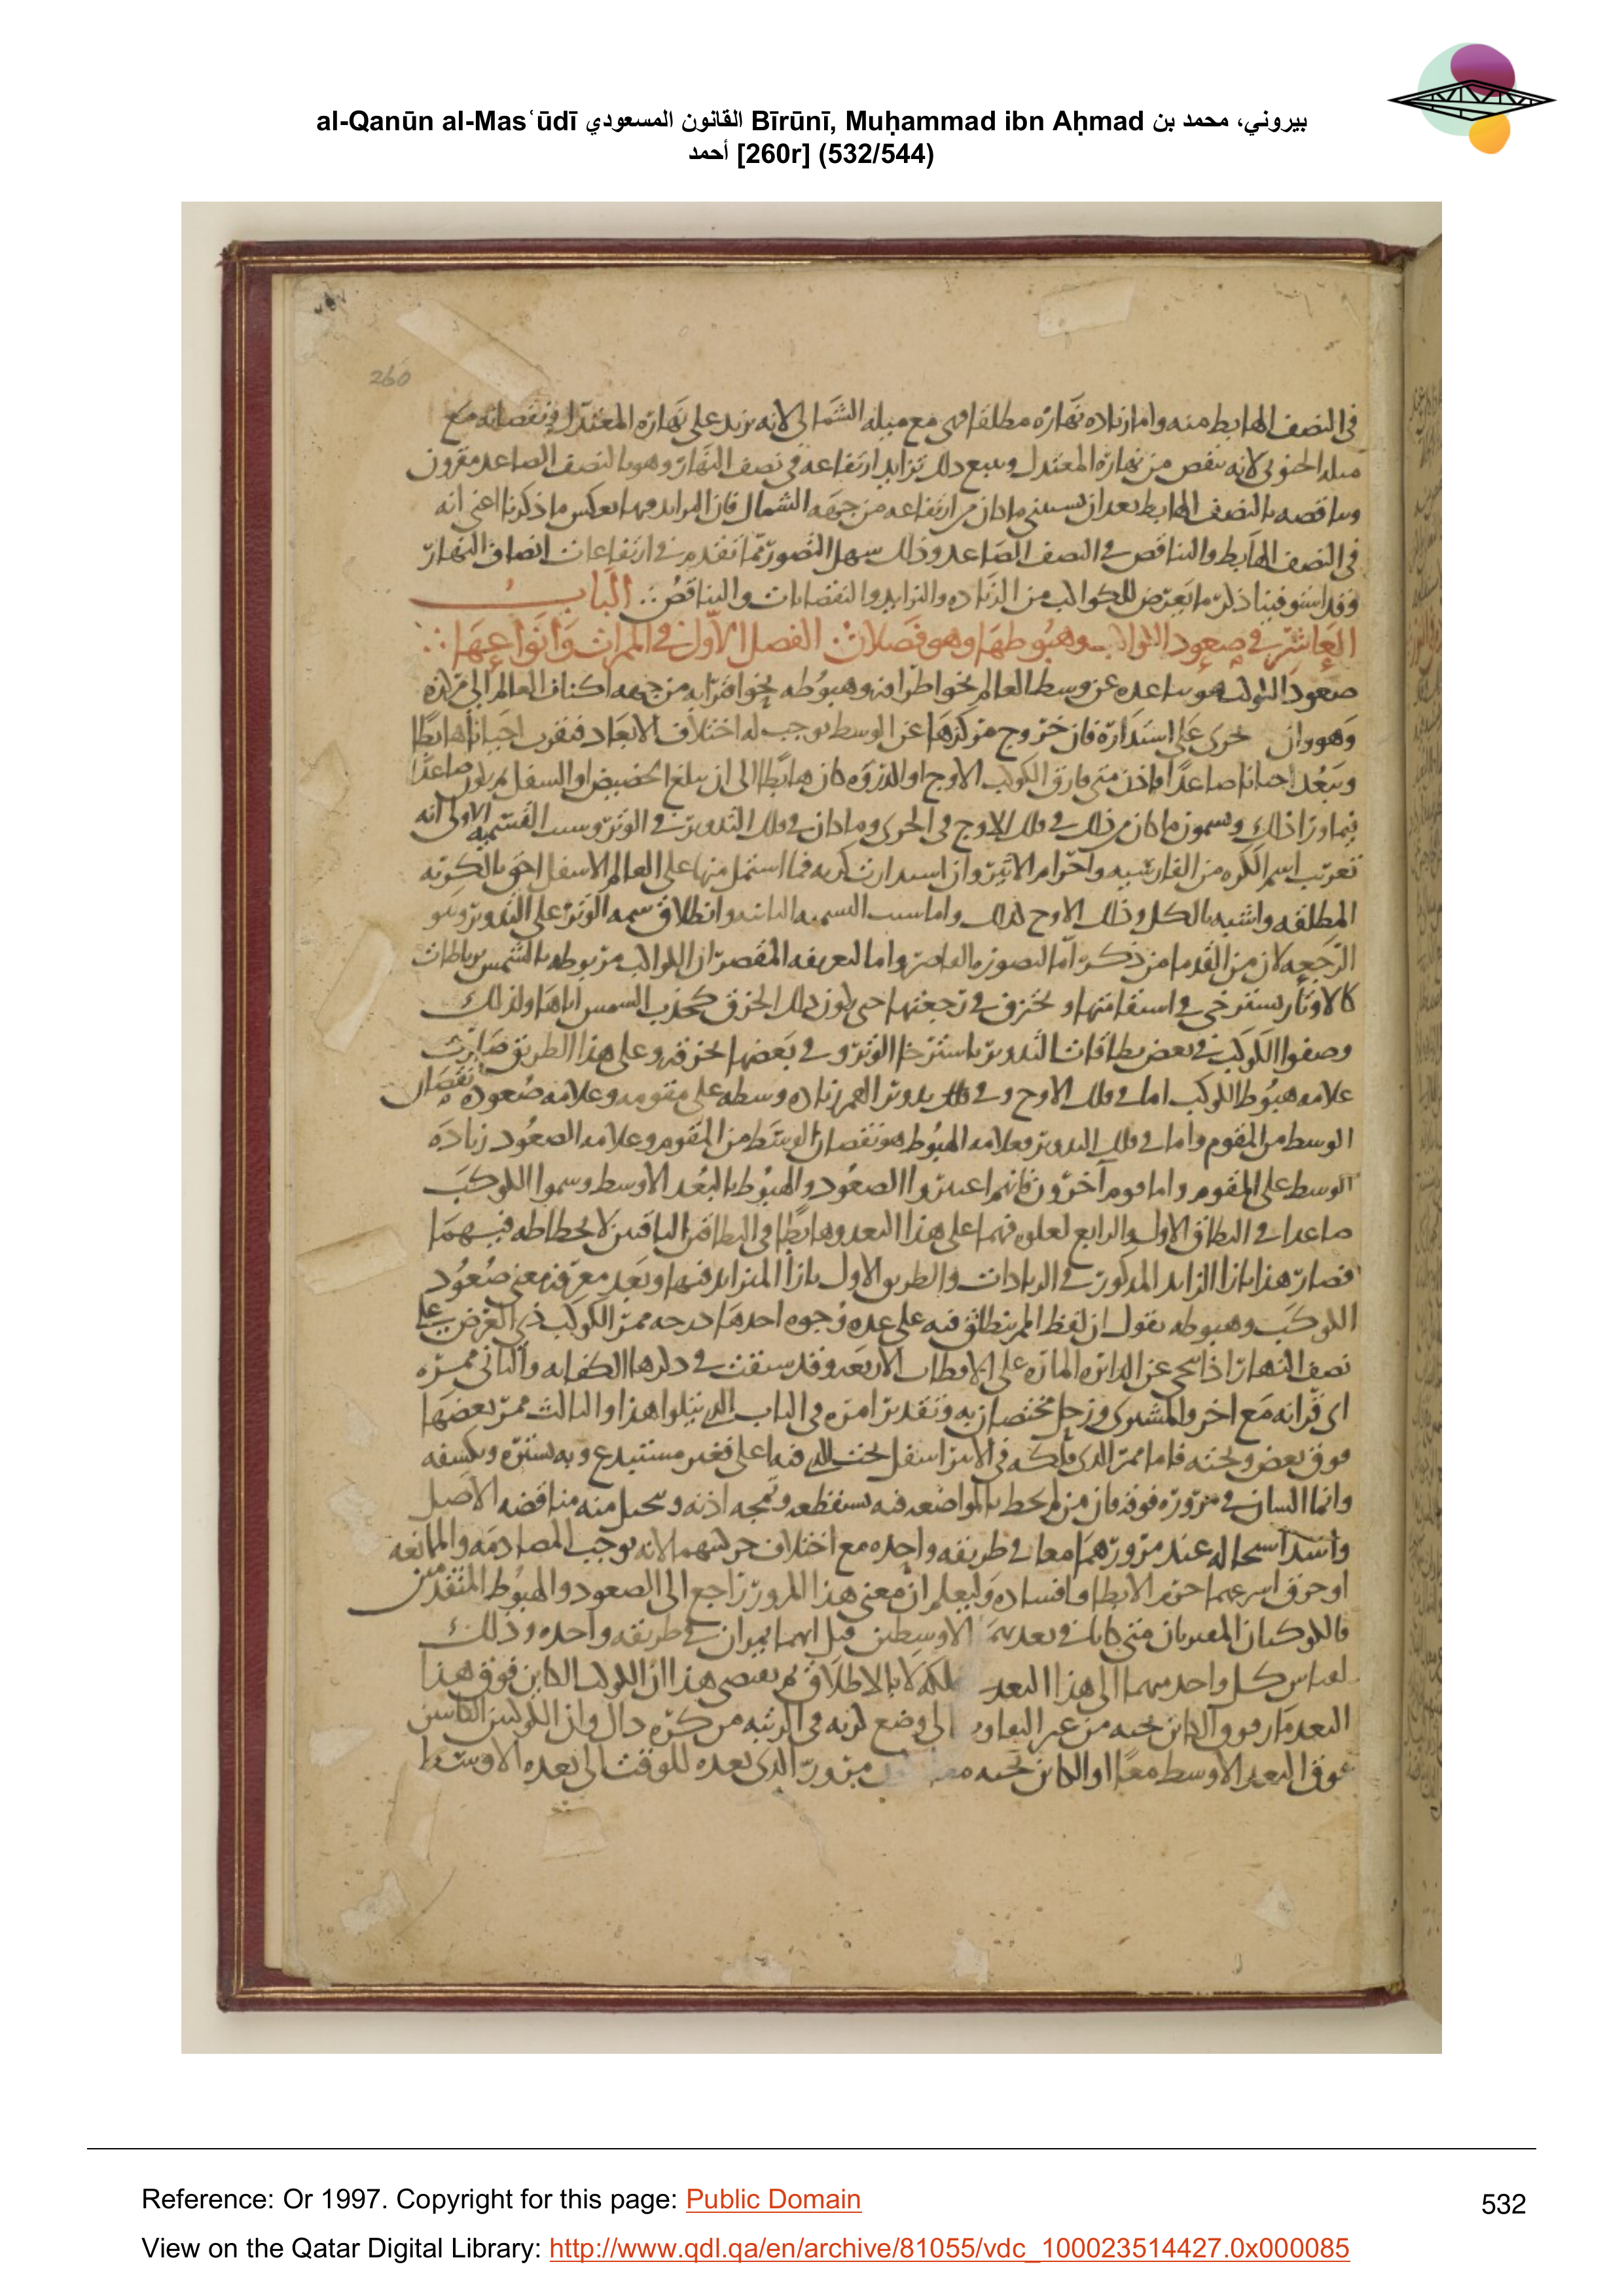 al-Qanūn al-Masʿūdī القانون المسعودي Bīrūnī, Muḥammad ibn Aḥmad بيروني، محمد بن
أحمد [260r] (532/544)
260
في النصف الهابط منه واما زياده نهاره مطلقا فهي مع ميله الشمالي لانه يزيد على نهاره المعتدل ونقصانه مع
ميله الجنوبي لانه ينقص من نهاره المعتدل ويتبع ذلك تزايد ارتفاعه في نصف النهار وهو بالنصف الصاعد مقرون
وتناقصه بالنصف الهابط بعد ان يستثنى ما كان من ارتفاعه من جهه الشمال فان التزايد فيها بعكس ما ذكرنا اعني انه
في النصف الهابط والتناقص في النصف الصاعد وذلك سهل التصور مما تقدم في ارتفاعات انصاف النهار
وقد استوفينا ذكر ما يعرض للكواكب من الزياده والتزايد والنقصانات والتناقص ∴ الباب
العاشر في صعود الكواكب وهبوطها وهو فصلان ∴ الفصل الاول في الممرات وانواعها ∴
صعود الكوكب هو تباعده عن وسط العالم نحو اطرافه وهبوطه نحو اقترابه من جهه اكناف العالم الى مركزه
وهو وان جرى على استداره فان خروج مركزها عن الوسط يوجب له اختلاف الابعاد فيقرب احيانا هابطا
ويبعد احيانا صاعدا فاذن متى فارق الكوكب الاوج او الذروه كان هابطا الى ان يبلغ الحضيض او السفل ثم يكون صاعدا
فيما وراء ذلك ويسمون ما كان من ذلك في فلك الاوج في الكرى وما كان في فلك التدوير في الوتر وسبب القسميه الاولى انه
تعريب اسم الكره من الفارسيه واجرام الاثير وان استدارت كريه فما اشتمل منها على العالم الاسفل احق بالكريه
المطلقه واشبه بالكل وفلك الاوج كذلك واما سبب التسميه الثانيه وانطلاق سمه الوتر على التدوير وسو
الرجعه لان من القدما من ذكر اما لتصوره القاصر واما لتعريفه المقصر ان الكواكب مربوطه بالشمس برباطات
كالاوتار تسترخي في استقامتها وتخزق في رجعتها حتى يكون ذلك الخزق كجذب الشمس اياها ولذلك
وصفوا الكوكب في بعض نطاقات التدوير باسترخا الوتر وفي بعضها بخزقه وعلى هذا الطريق صارت
علامه هبوط الكوكب اما في فلك الاوج وفي فلك تدوير القمر زياده وسطه على مقومه وعلامه صعوده نقصان
الوسط من المقوم واما في فلك التدوير فعلامه الهبوط هو نقصان الوسط من المقوم وعلامه الصعود زياده
الوسط على المقوم واما قوم آخرون فانهم اعتبروا الصعود والهبوط بالبعد الاوسط وسموا الكوكب
صاعدا في النطاق الاول والرابع لعلوه فيهما على هذا البعد وهابطا في النطاقين الباقيين لانحطاطه فيهما
فصار هذا بازا الزايد المذكور في الزيادات والطريق الاول بازا المتزايد فيها وبعد معرفه معنى صعود
الكوكب وهبوطه نقول ان لفظ الممر ينطلق فيه على عده وجوه احدها درجه ممر الكوكب ذي العرض على
نصف النهار اذا تنحى عن الدائره الماره على الاقطاب الاربعه وقد سبقت في ذكرها الكفايه والثاني ممره
اي قرانه مع اخر والمشتري وزحل مختصان به وتقدير امره في الباب الذي يتلوا هذا والثالث ممر بعضها
فوق بعض وتحته فاما ممر الذي فلكه في الاثير اسفل تحت الذي فيه اعلى فغير مستبدع وبه يستره ويكسفه
وانما الشان في مروره فوقه فان من لم يحط بالمواضعه فيه يستفظعه وتمجه اذنه ويتخيل منه مناقضه الاصل
واشد استحاله عند مرورهما معا في طريقه واحده مع اختلاف حركتيهما لانه يوجب المصادمه والممانعه
او خرق اسرعهما جرم الابطا وافساده وليعلم ان معنى هذا المرور راجع الى الصعود والهبوط المتقدمين
فالكوكبان المقترنان متى كانا في بعديهما الاوسطين قيل انهما يمران في طريقه واحده وذلك
لقياس كل واحد منهما الى هذا البعد فلكه لا بالاطلاق ثم يقتضي هذا ان الكوكب الكاين فوق هذا
البعد مار فوق الكاين تحته من غير التفاوت الى وضع كريه في الرتبه من كره دال وان الكوكبين الكاينين
فوق البعد الاوسط معا او الكاين تحته معا مرور الذي بعده للوقت الى بعده الاوسط
Reference: Or 1997. Copyright for this page: Public Domain
532
View on the Qatar Digital Library: http://www.qdl.qa/en/archive/81055/vdc_100023514427.0x000085